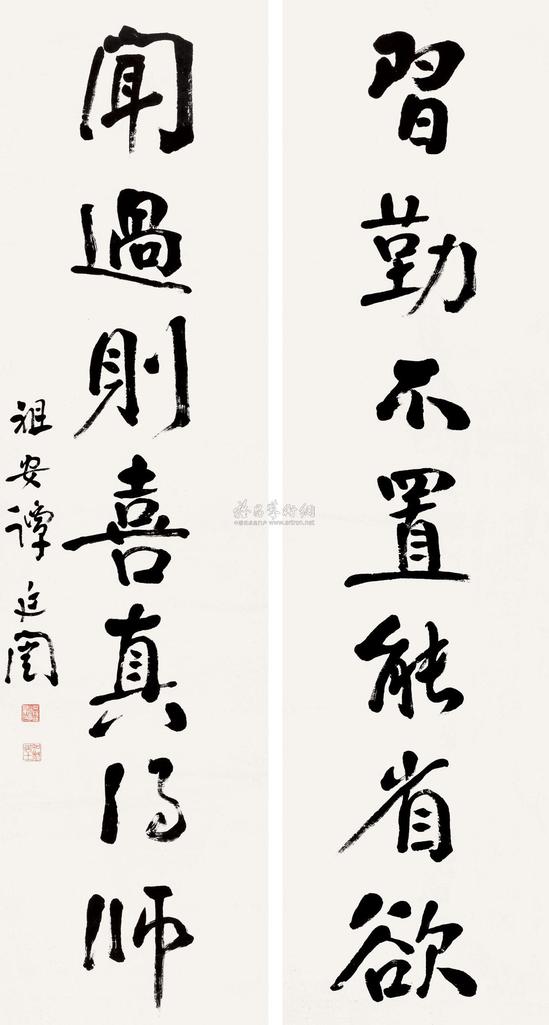 習勤不置能省欲
聞過則喜真得師
祖安譚延闓
雅昌藝術網
www.artron.net